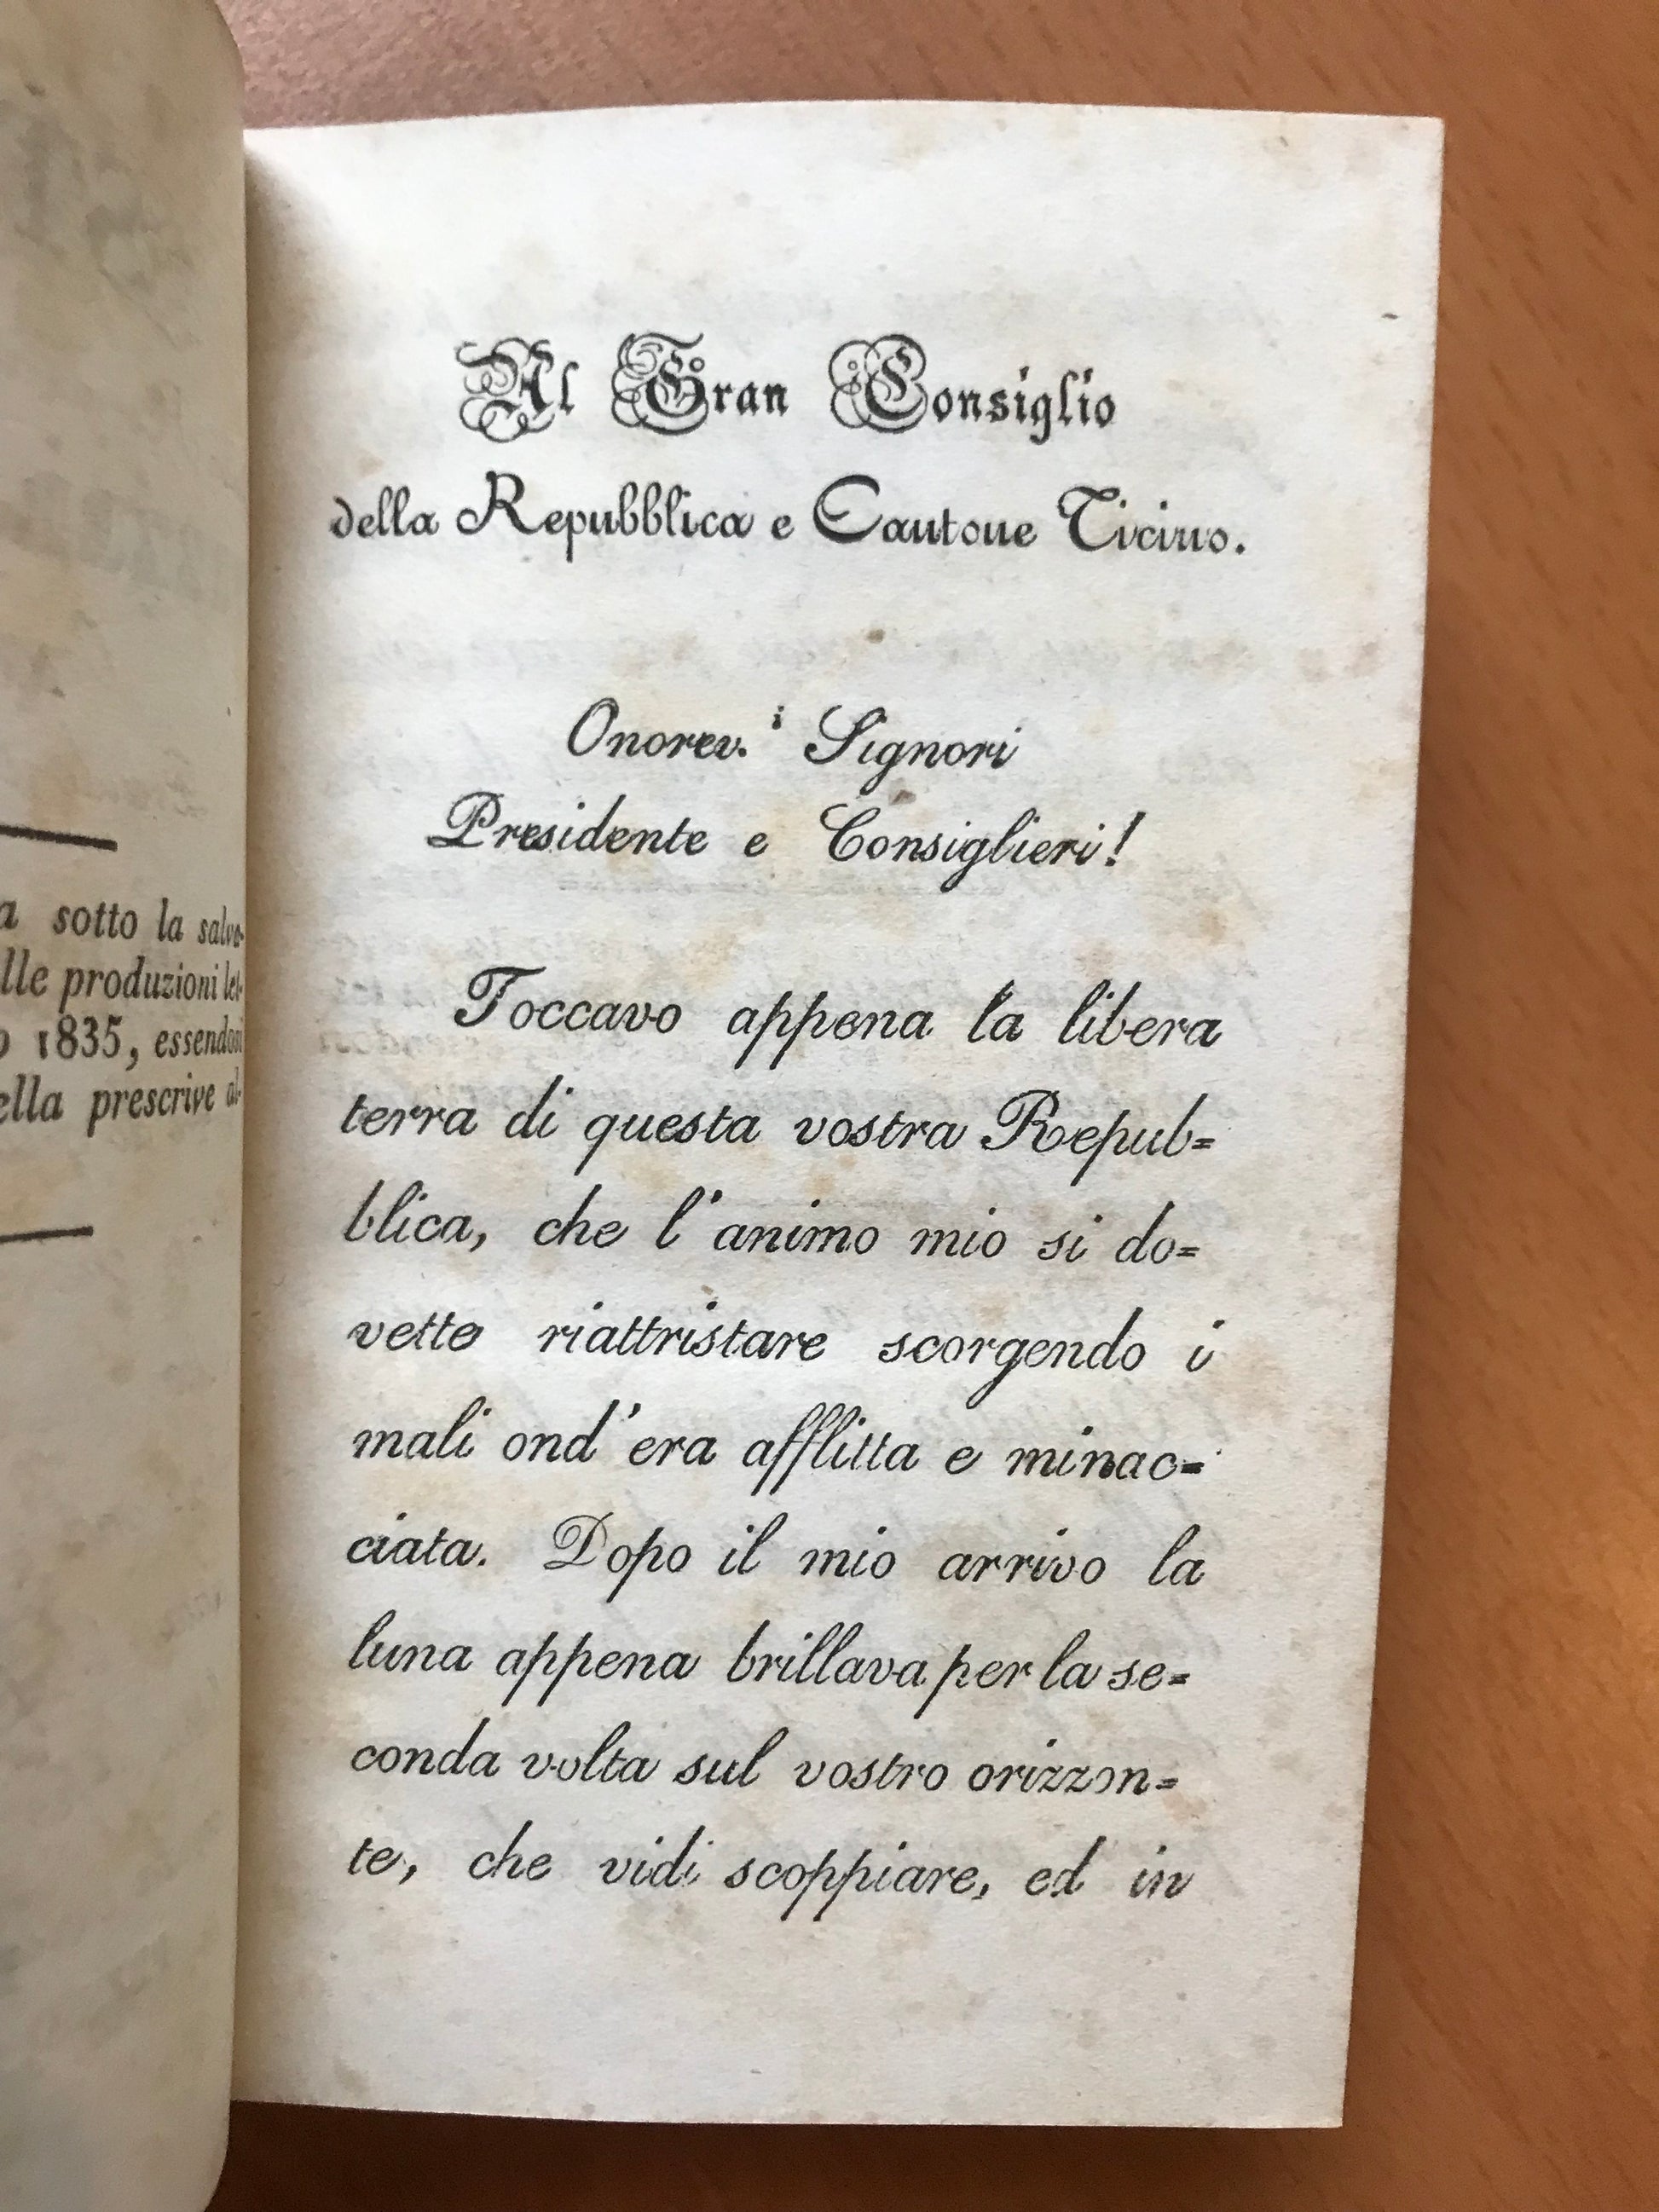 a sotto la salva-
lle produzioni let-
o 1835, essendosi
ella prescrive al-
Al Gran Consiglio
della Repubblica e Cantone Ticino.
Onorev.i Signori
Presidente e Consiglieri!
Toccavo appena la libera
terra di questa vostra Repub=
blica, che l'animo mio si do=
vette riattristare scorgendo i
mali ond'era afflitta e minac=
ciata. Dopo il mio arrivo la
luna appena brillava per la se=
conda volta sul vostro orizzon=
te, che vidi scoppiare, ed in